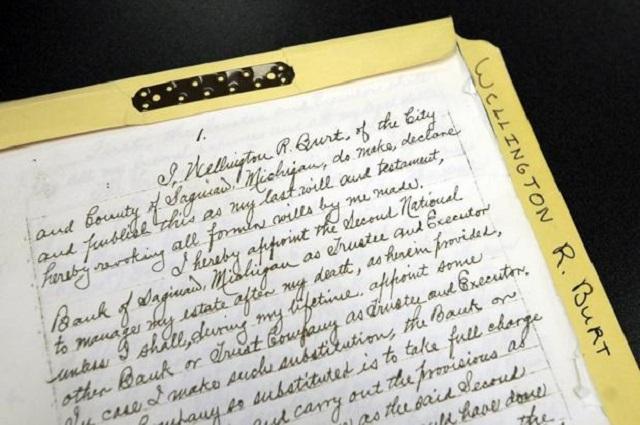 1.
I, Wellington R. Burt, of the City
and County of Saginaw, Michigan, do make, declare
and publish this as my last will and testament,
hereby revoking all former wills by me made.
I hereby appoint the Second National
Bank of Saginaw, Michigan as Trustee and Executor
to manage my estate after my death, as herein provided,
unless I shall, during my lifetime appoint some
other Bank or Trust Company as Trustee and Executor.
In case I make such substitution, the Bank or
Company so substituted is to take full charge
and carry out the provisions as
as the said Second
would have done
the
WELLINGTON R. BURT